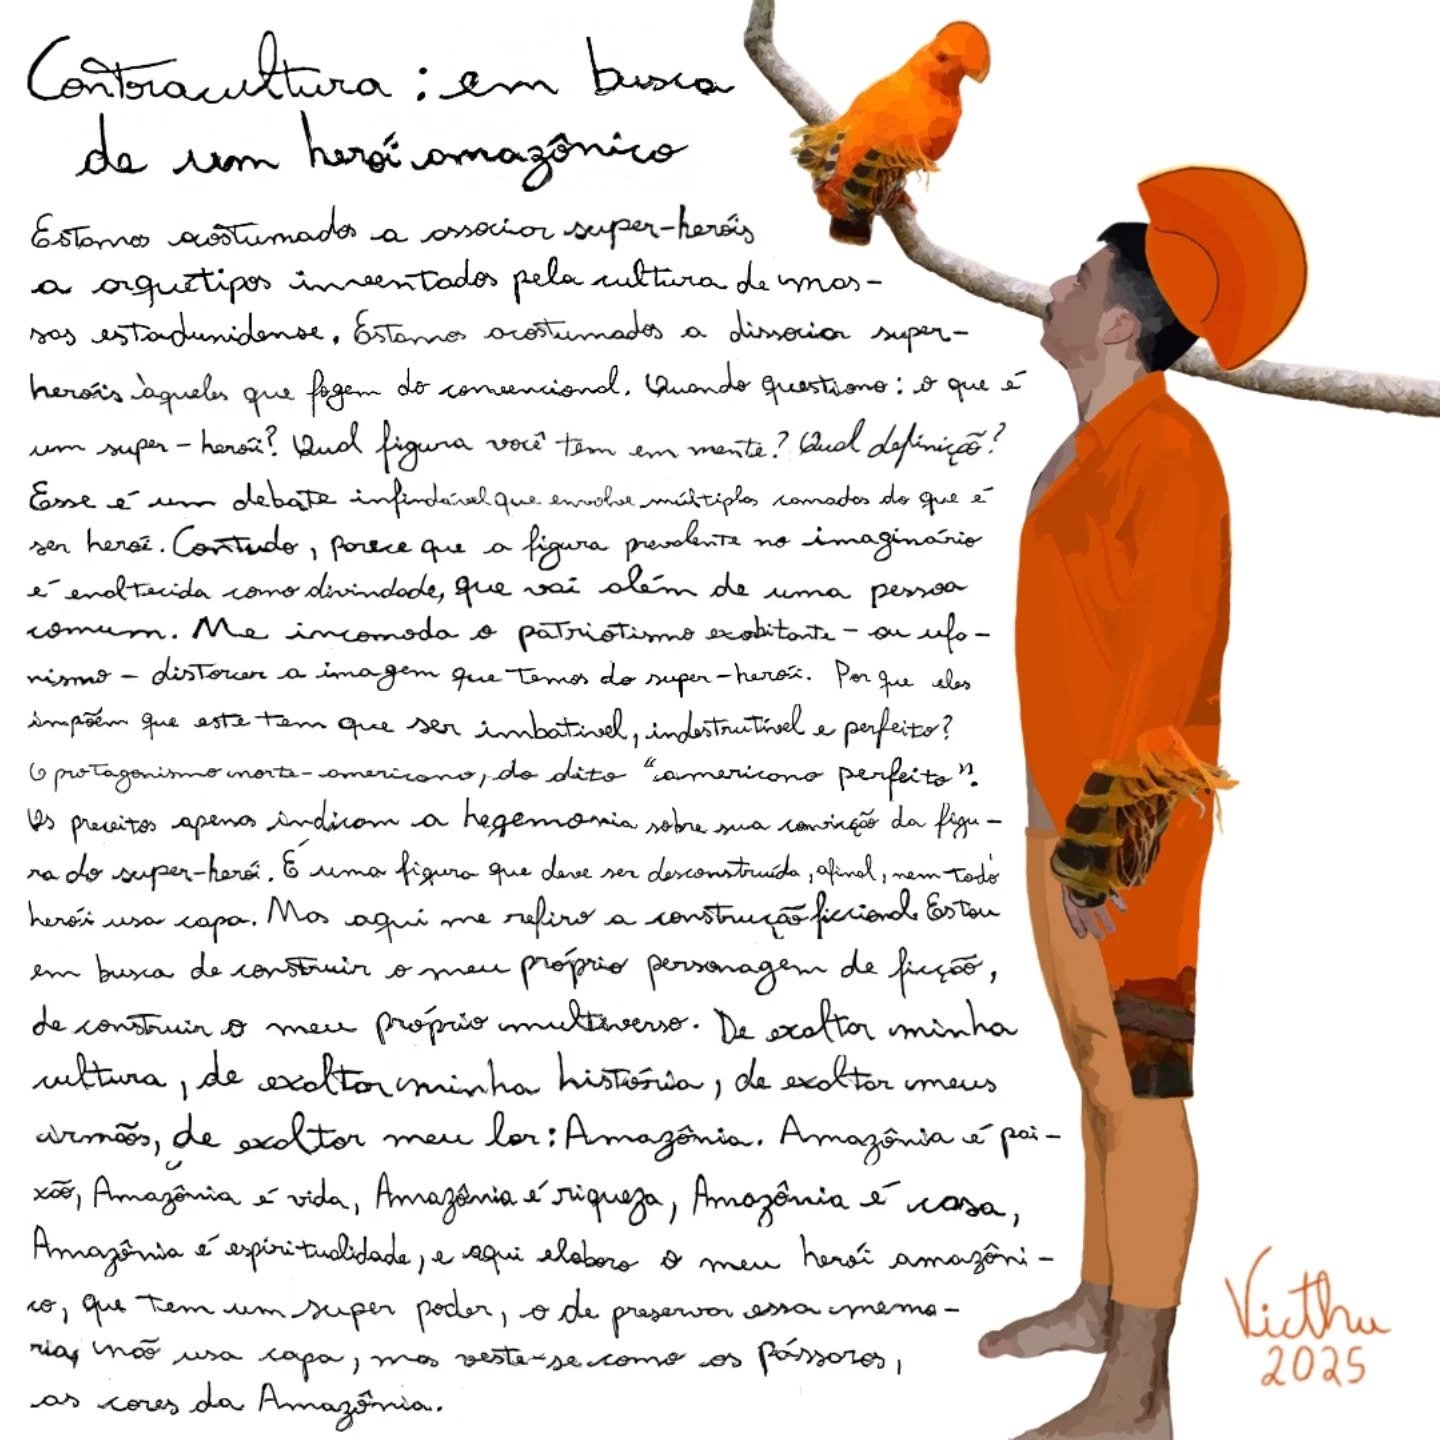 Contracultura: em busca
de um herói amazônico
Estamos acostumados a associar super-heróis
a arquétipos inventados pela cultura de mas-
sas estadunidense. Estamos acostumados a dissociar super-
heróis àqueles que fogem do convencional. Quando questiono: o que é
um super-herói? Qual figura você tem em mente? Qual definição?
Esse é um debate infindável que envolve múltiplas camadas do que é
ser herói. Contudo, parece que a figura prevalente no imaginário
é enaltecida como divindade, que vai além de uma pessoa
comum. Me incomoda o patriotismo exobitante - ou ufa-
nismo - distorcer a imagem que temos do super-herói. Por que eles
impõem que este tem que ser imbatível, indestrutível e perfeito?
O protagonismo norte-americano, do dito "americano perfeito".
Os preceitos apenas indicam a hegemonia sobre sua convicção da figu-
ra do super-herói. É uma figura que deve ser desconstruída, afinal, nem todo
herói usa capa. Mas aqui me refiro a construção ficcional. Estou
em busca de construir o meu próprio personagem de ficção,
de construir o meu próprio multiverso. De exaltar minha
cultura, de exaltar minha história, de exaltar meus
irmãos, de exaltar meu lar: Amazônia. Amazônia é pai-
xão, Amazônia é vida, Amazônia é riqueza, Amazônia é casa,
Amazônia é espiritualidade, e aqui elaboro o meu herói amazôni-
co, que tem um super poder, o de preservar essa memo-
ria, não usa capa, mas veste-se como os pássaros,
as cores da Amazônia.
Victhu
2025